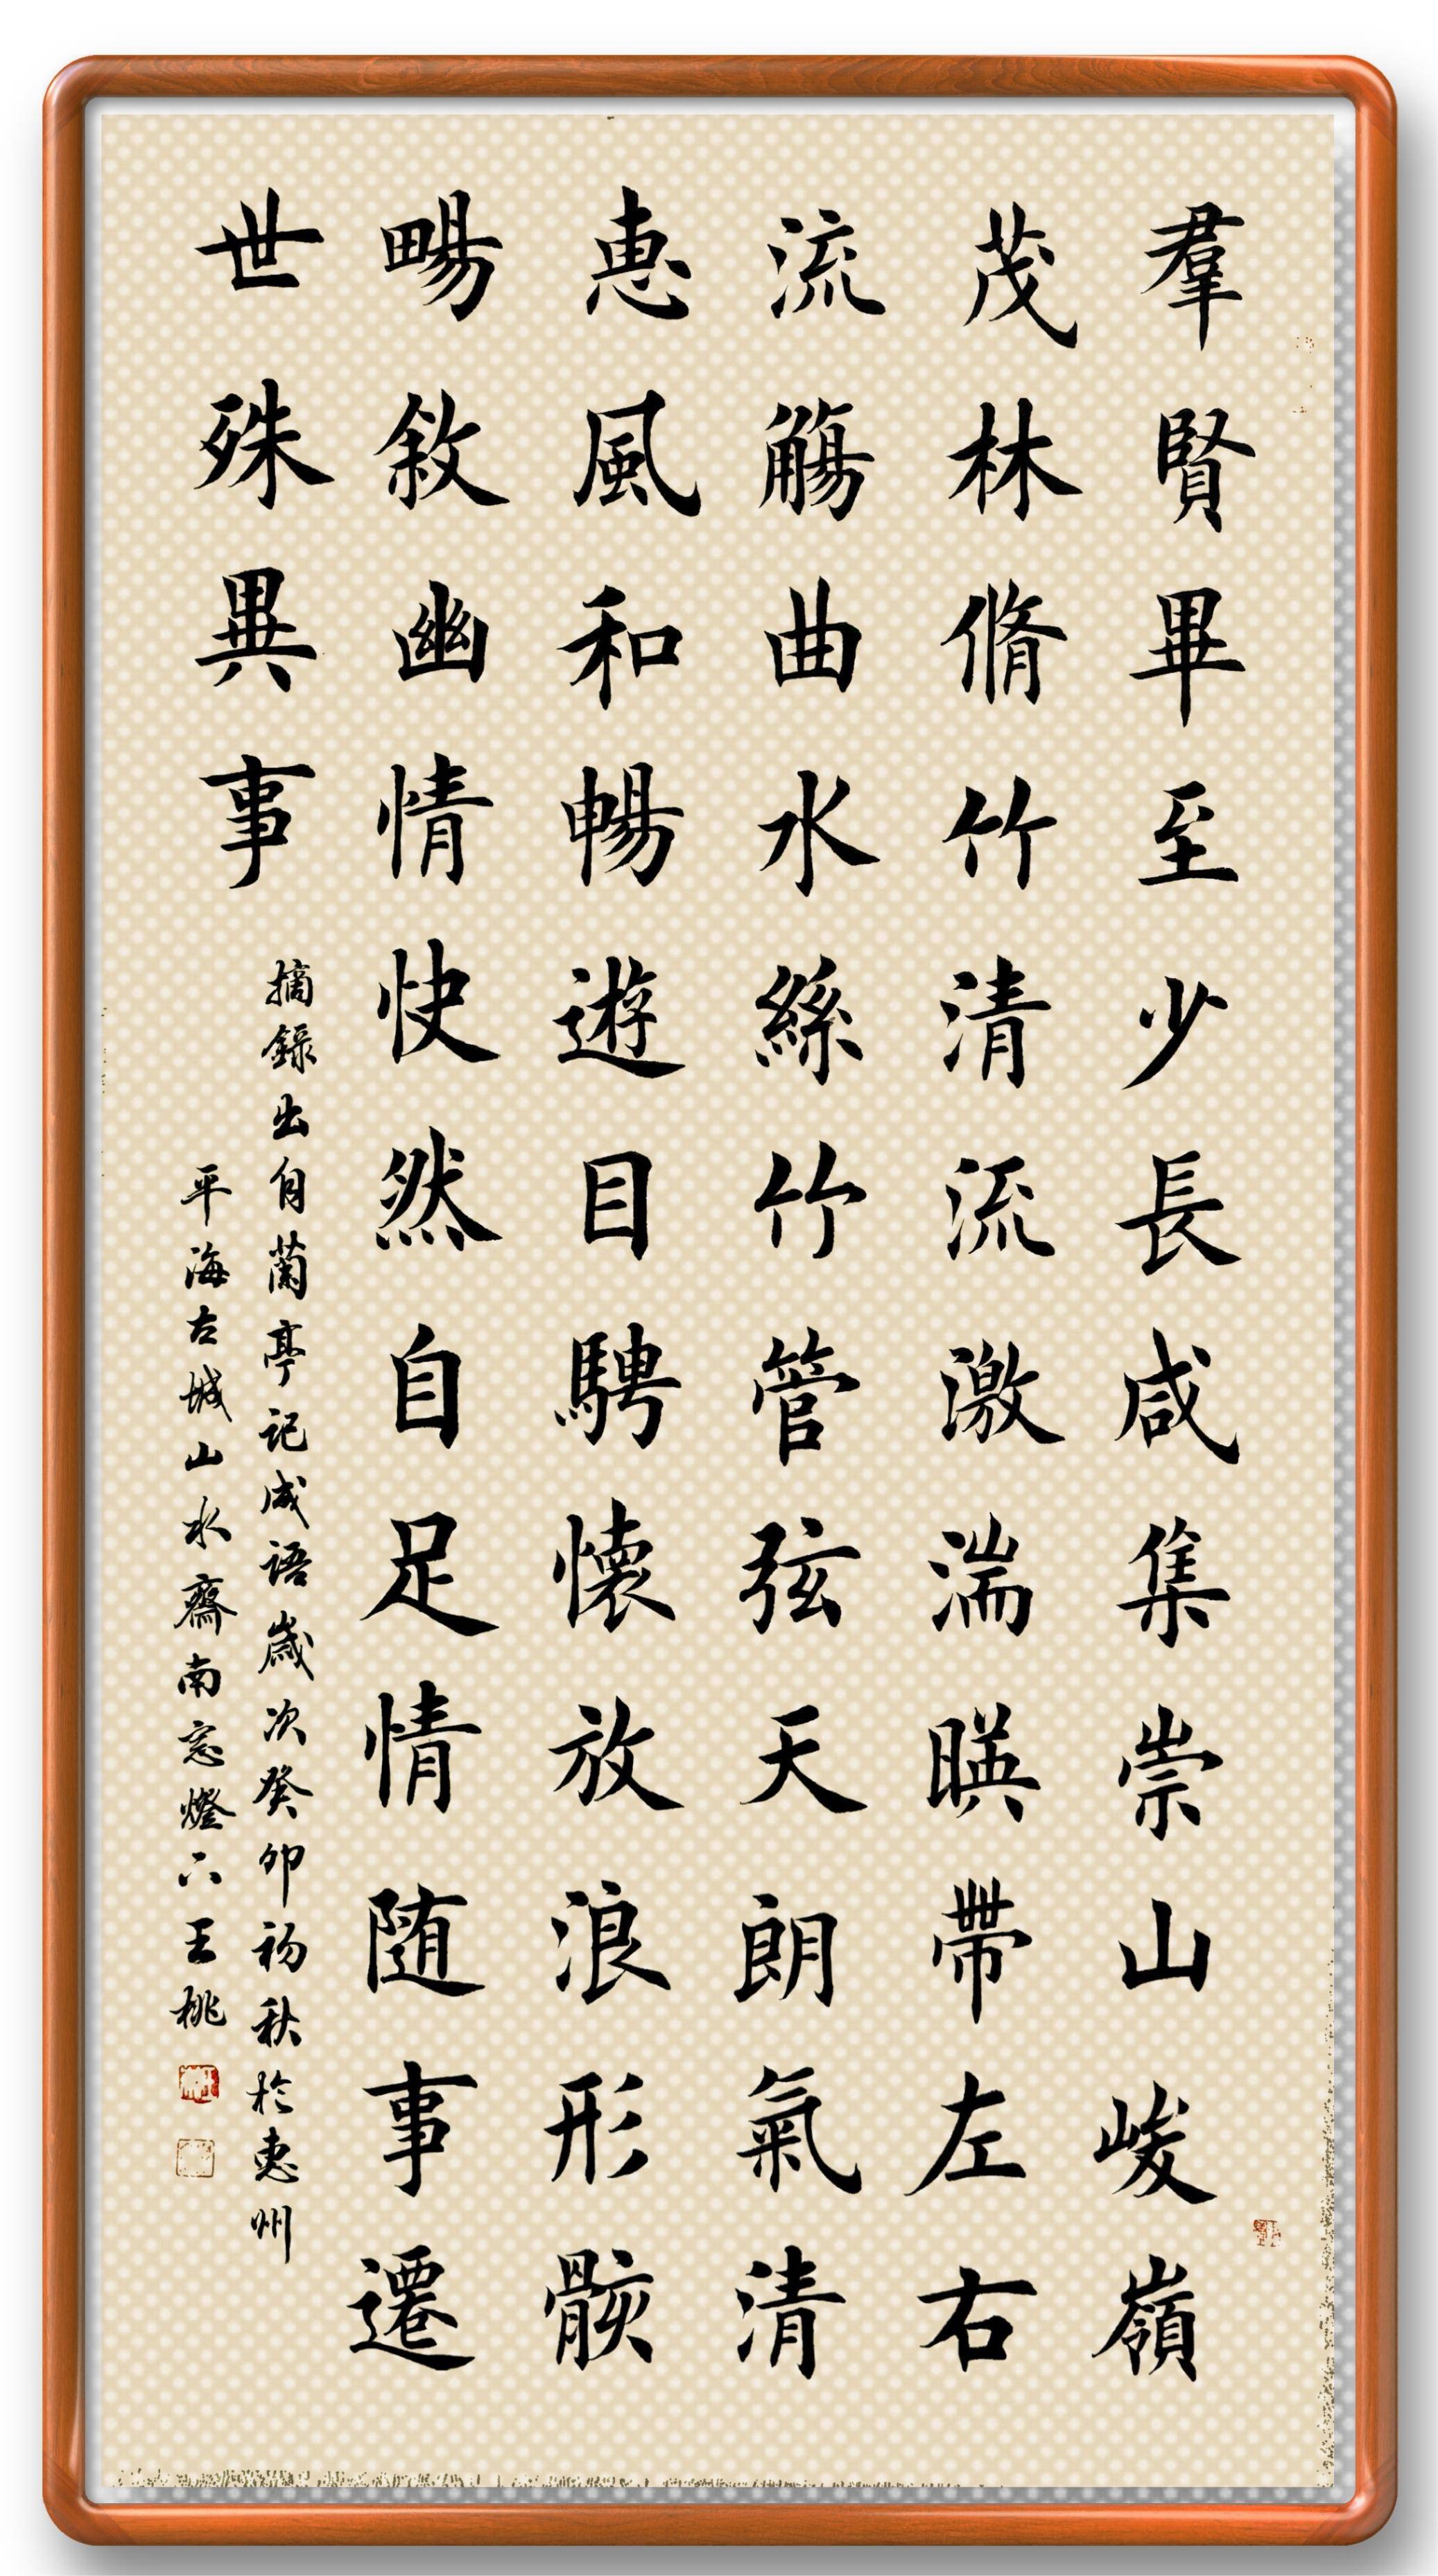 羣賢畢至少長咸集崇山峻嶺
茂林脩竹清流激湍暎帶左右
流觴曲水絲竹管弦天朗氣清
惠風和暢遊目騁懷放浪形骸
暢敘幽情快然自足情随事遷
世殊異事
摘錄出自蘭亭记成语歲次癸卯初秋於惠州
平海古城山水齋南窓燈下王桃